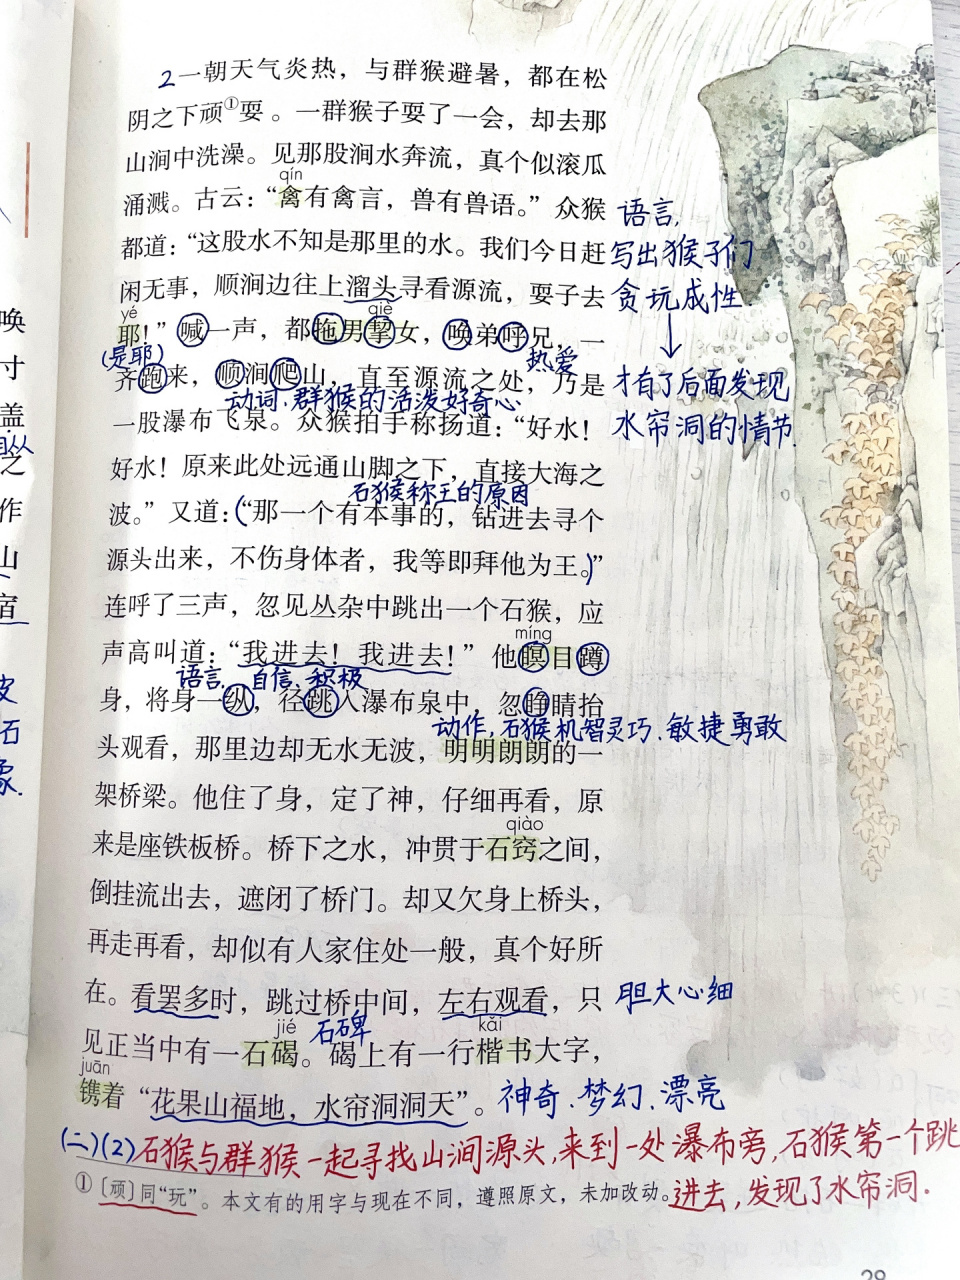 2一朝天气炎热，与群猴避暑，都在松
阴之下顽①耍。一群猴子耍了一会，却去那
山涧中洗澡。见那股涧水奔流，真个似滚瓜
qín
涌溅。古云：“禽有禽言，兽有兽语。”众猴
语言，
都道：“这股水不知是那里的水。我们今日赶
写出猴子们
闲无事，顺涧边往上溜头寻看源流，耍子去
贪玩成性
yé
qiè
耶！”喊一声，都拖男挈女，唤弟呼兄，一
(是耶)
热爱
齐跑来，顺涧爬山，直至源流之处，乃是
才有了后面发现
动词.群猴的活泼好奇心
一股瀑布飞泉。众猴拍手称扬道：“好水！
水帘洞的情节.
好水！原来此处远通山脚之下，直接大海之
石猴称王的原因
波。”又道：(“那一个有本事的，钻进去寻个
源头出来，不伤身体者，我等即拜他为王。)”
连呼了三声，忽见丛杂中跳出一个石猴，应
míng
声高叫道：“我进去！我进去！”他瞑目蹲
语言、自信、积极
身，将身一纵，径跳入瀑布泉中，忽睁睛抬
动作，石猴机智灵巧、敏捷勇敢
头观看，那里边却无水无波，明明朗朗的一
架桥梁。他住了身，定了神，仔细再看，原
qiào
来是座铁板桥。桥下之水，冲贯于石窍之间，
倒挂流出去，遮闭了桥门。却又欠身上桥头，
再走再看，却似有人家住处一般，真个好所
在。看罢多时，跳过桥中间，左右观看，只
胆大心细
jié
石碑
kǎi
见正当中有一石碣。碣上有一行楷书大字，
juān
镌着“花果山福地，水帘洞洞天”。
神奇、梦幻、漂亮
(二)(2)石猴与群猴一起寻找山涧源头,来到一处瀑布旁,石猴第一个跳
进去,发现了水帘洞.
①〔顽〕同“玩”。本文有的用字与现在不同，遵照原文，未加改动。
唤
寸
盖
之
作
山
宿
皮
石
象.